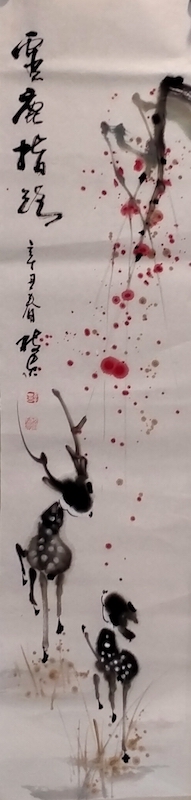 靈鹿指路
辛丑春